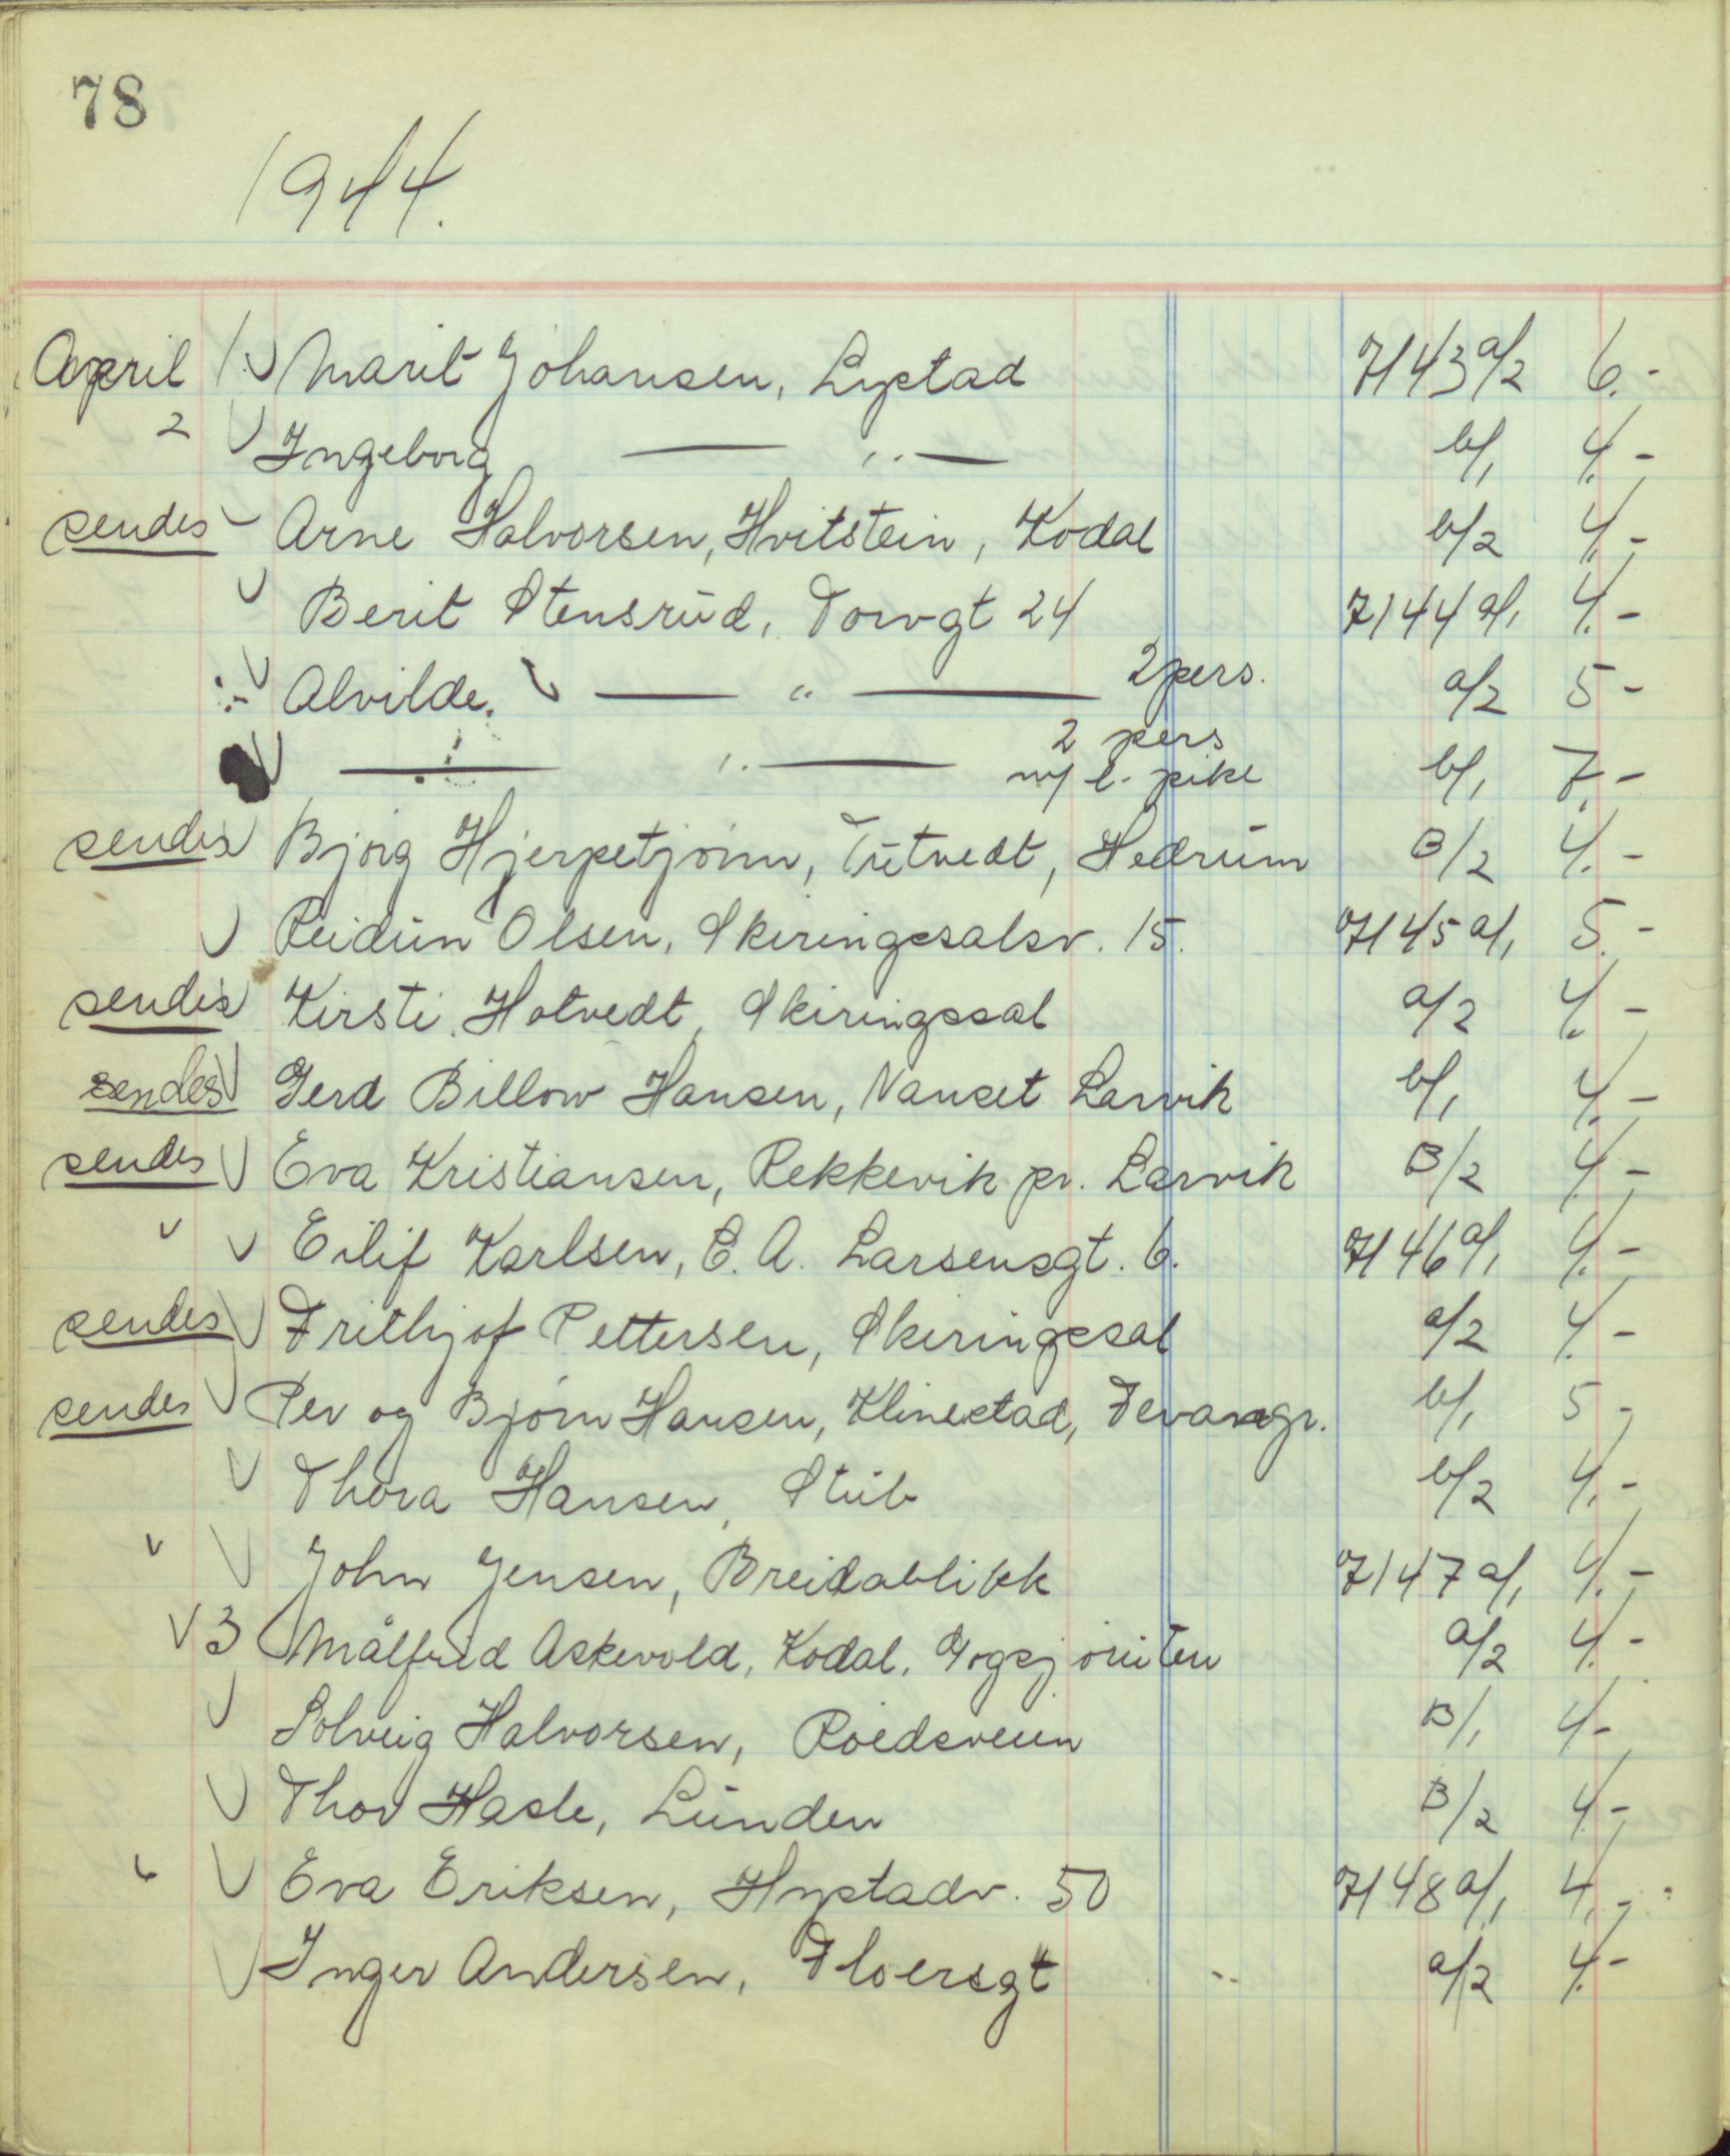 78
1944.
April 1. √ Marit Johansen, Lystad 7143 a/2 6.-
2 √ Ingeborg — " — b/1 4.-
sendes √ Arne Halvorsen, Hvitstein, Kodal b/2 4.-
√ Berit Stensrud, Torvgt 24 7144 a/1 4.-
√ Alvilde. √ — " — 2 pers. a/2 5-
√ — " — 2 pers m/ l. pike b/1 7.-
sendes √ Bjørg Hjerpetjønn, Tutvedt, Hedrum B/2 4.-
√ Reidun Olsen, Skiringssalsv. 15. 7145 a/1 5.-
sendes √ Kirsti Hotvedt, Skiringssal a/2 4.-
sendes √ Gerd Billow Hansen, Nanset Larvik b/1 4.-
sendes √ Eva Kristiansen, Rekkevik pr. Larvik B/2 4.-
√ √ Eilif Karlsen, C. A. Larsensgt. 6. 7146 a/1 4.-
sendes √ Frithjof Pettersen, Skiringssal a/2 4.-
sendes √ Per og Bjørn Hansen, Klinestad, b/1 5-
√ Thora Hansen, Stub b/2 4.-
√ √ John Jensen, Breidablikk 7147 a/1 4.-
√ 3 Målfrid Askevold, Kodal, a/2 4.-
√ Solveig Halvorsen, Roedsveien B/1 4-
√ Thor Hasle, Lunden B/2 4-
√ √ Eva Eriksen, Hystadv. 50 7148 a/1 4.-
√ Inger Andersen, Floersgt a/2 4.-